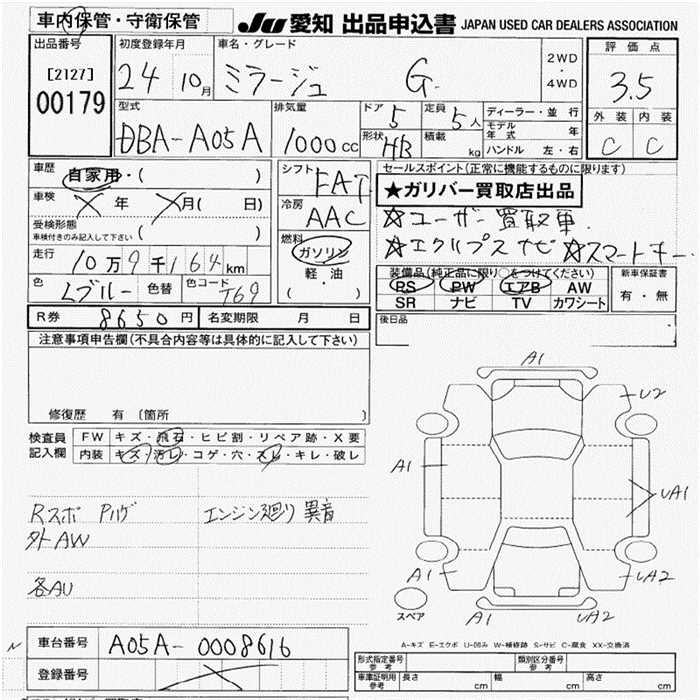 車内保管・守衛保管
JU 愛知 出品申込書 JAPAN USED CAR DEALERS ASSOCIATION
出品番号
[2127]
00179
初度登録年月
24 10月
車名・グレード
ミラージュ G.
2WD
・
4WD
評価点
3.5
外装 内装
C C
型式
DBA-A05A
排気量
1000cc
ドア 5
定員 5人
形状 HB
積載 kg
ディーラー・並行
モデル年式 年
ハンドル 左・右
車歴
自家用・( )
車検
年 月( 日)
受検形態
車検付きのみ記入して下さい ( )
走行
10万9千164km
色
Lブルー
色替
色コード
T69
シフト
FAT
冷房
AAC
燃料
ガソリン
軽・油
( )
セールスポイント(正常に機能するものに限ります)
★ガリバー買取店出品
☆ユーザー買取車.
☆エクリプスナビ ☆スマートキー.
装備品(純正品に限り○をつけてください)
PS PW エアB AW
SR ナビ TV カワシート
新車保証書
有・無
R券 8650円
名変期限 月 日
後日品
注意事項申告欄(不具合内容等は具体的に記入して下さい)
修復歴 有 〔箇所 〕
検査員
記入欄
FW キズ・飛石・ヒビ割・リペア跡・X要
内装 キズ・汚レ・コゲ・穴・スレ・キレ・破レ
Rスポ Pハゲ
エンジン廻り異音
外AW
各AU
A1
U2
A1
UA1
A1
UA2
スペア
A1
UA2
A-キズ E-エクボ U-凹み W-補修跡 S-サビ C-腐食 XX-交換済
車台番号
A05A-0008616
登録番号
形式指定番号
参考
類別区分番号
参考
車庫証明用
参考
長さ cm
幅 cm
高さ cm